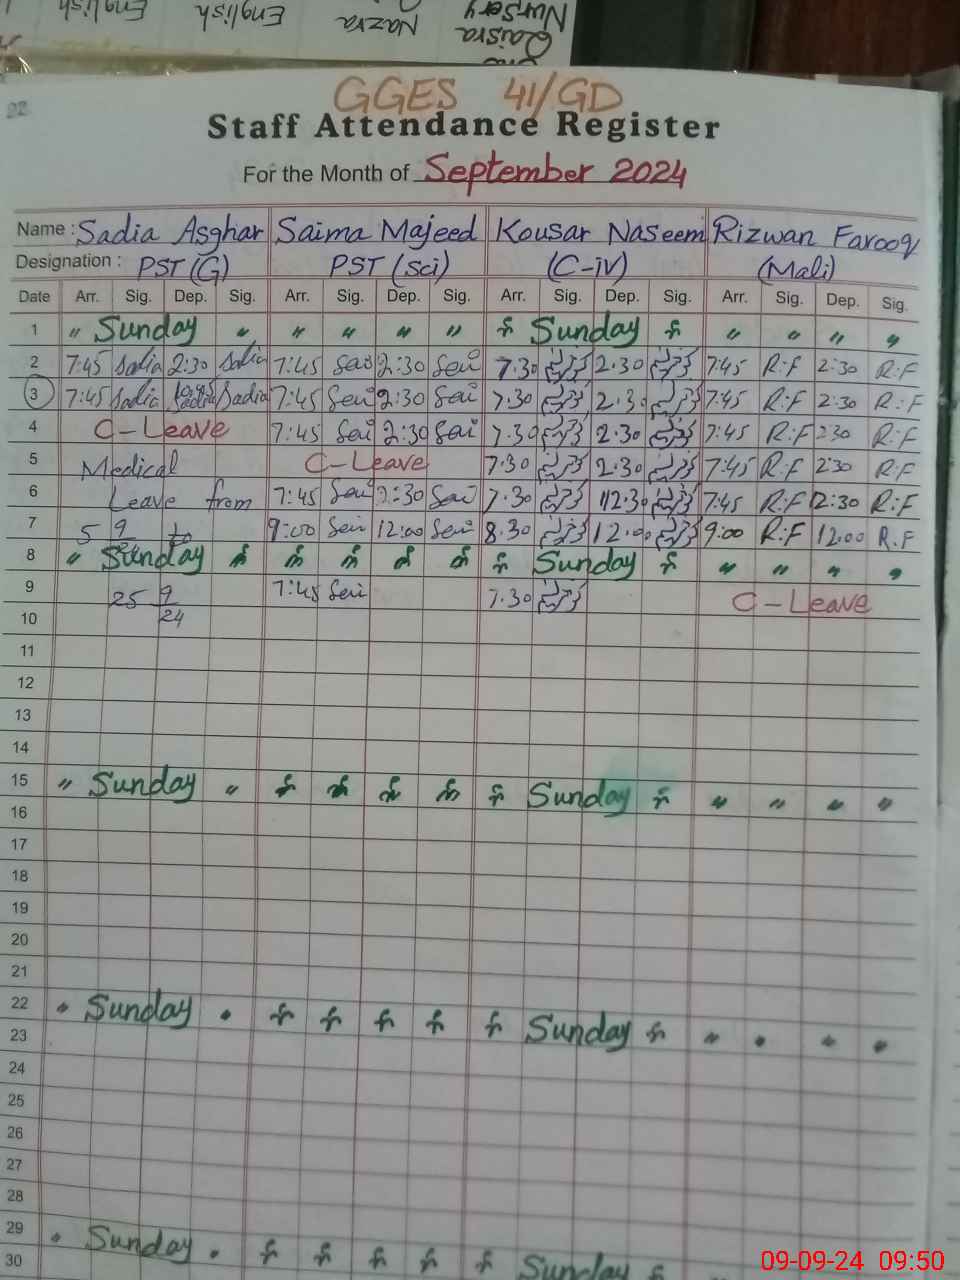 Nursery
Qaisra Nazra English English
22
GGES 41/GD
Staff Attendance Register
For the Month of September 2024
Name : Sadia Asghar Saima Majeed Kousar Naseem Rizwan Farooq
Designation : PST (G) PST (sci) (C-iv) (Mali)
Date Arr. Sig. Dep. Sig. Arr. Sig. Dep. Sig. Arr. Sig. Dep. Sig. Arr. Sig. Dep. Sig.
1 " Sunday " " " " " Sunday " " " "
2 7:45 Sadia 2:30 Sadia 7:45 Sai 2:30 Sai 7.30 2.30 7:45 R.F 2:30 R.F
3 7:45 Sadia Sadia 7:45 Sai 2:30 Sai 7.30 2.30 7:45 R.F 2:30 R.F
4 C-Leave 7:45 Sai 2:30 Sai 7.30 2.30 7:45 R.F 2:30 R.F
5 Medical C-Leave 7.30 2.30 7:45 R.F 2:30 R.F
6 Leave from 7:45 Sai 2:30 Sai 7.30 12.30 7:45 R.F 12:30 R.F
7 5 9 to 9:00 Sai 12:00 Sai 8.30 12.00 9:00 R.F 12:00 R.F
8 " Sunday Sunday " " " "
9 25 9 7:45 Sai 7.30 C-Leave
10 24
11
12
13
14
15 " Sunday " Sunday " " " "
16
17
18
19
20
21
22 " Sunday " Sunday " " " "
23
24
25
26
27
28
29 " Sunday " Sunday
30
09-09-24 09:50